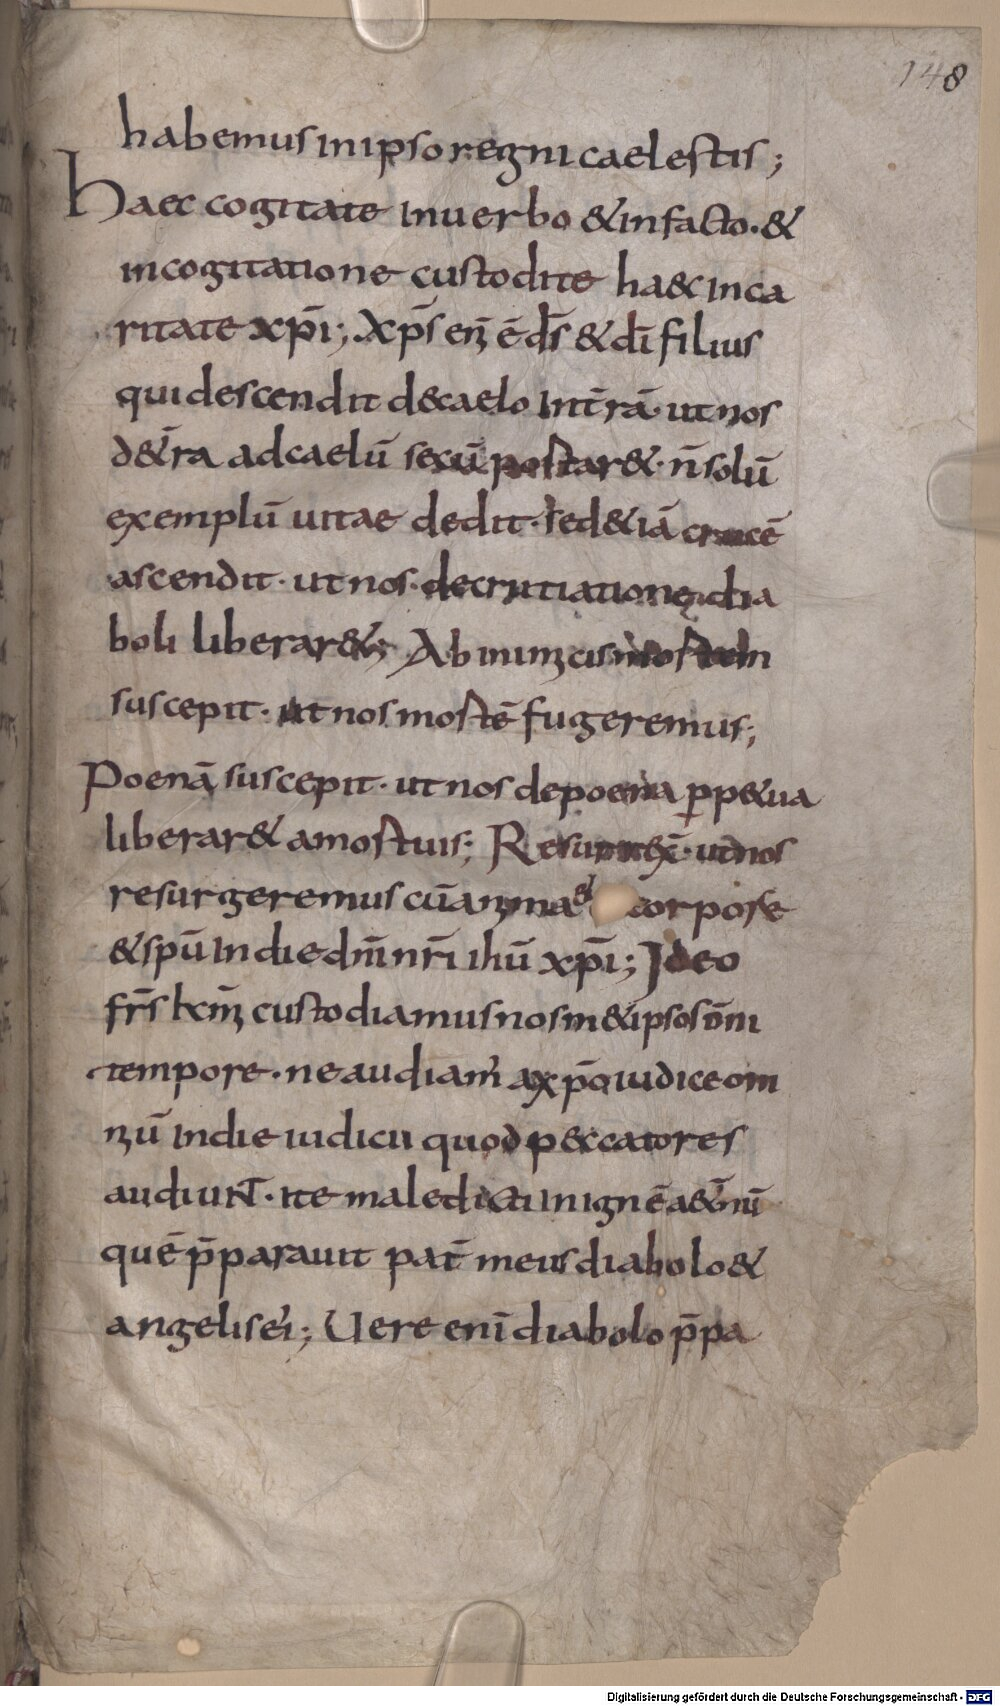 148
habemus in ipso regni caelestis;
Haec cogitate in uerbo & in facto · &
in cogitatione custodite ha&c in ca
ritate xp̄i; Xp̄s enī ē d̄s & dī filius
qui descendit de caelo in t̄rā · ut nos
de t̄ra ad caelū secū postar& · n̄ solū
exemplū uitae dedit · sed &iā crucē
ascendit · ut nos · de crutiatione dia
boli liberar&; Ab inimicis mostem
suscepit · ut nos mostē fugeremus;
Poenā suscepit · ut nos de poena perp&ua
liberar& a mostuis; Resurrex̄ · ut nos
resurgeremus cū anima & corpore
& sp̄u in die dn̄i nr̄i ihū xp̄i; Ideo
fr̄s km̄ custodiamus nosm&ipsos om̄i
tempore · ne audiam' a xp̄o iudice om
niū in die iudicii quod peccatores
audiuNT · ite maledicti in ignē a&̄nū
quē p̄parauit pat̄ meus diabolo &
angelis ei; Uere enī diabolo p̄pa
Digitalisierung gefördert durch die Deutsche Forschungsgemeinschaft - DFG